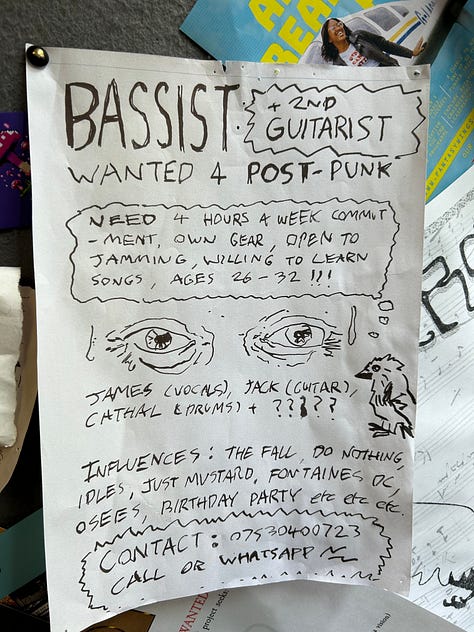 BASSIST
+ 2ND
GUITARIST
WANTED 4 POST-PUNK
NEED 4 HOURS A WEEK COMMIT
-MENT, OWN GEAR, OPEN TO
JAMMING, WILLING TO LEARN
SONGS, AGES 26-32 !!!
JAMES (VOCALS), JACK (GUITAR),
CATHAL (DRUMS) + ?????
INFLUENCES: THE FALL, DO NOTHING,
IDLES, JUST MUSTARD, FONTAINES DC,
OSEES, BIRTHDAY PARTY etc etc etc.
CONTACT: 07530400723
CALL OR WHATSAPP
WANTED